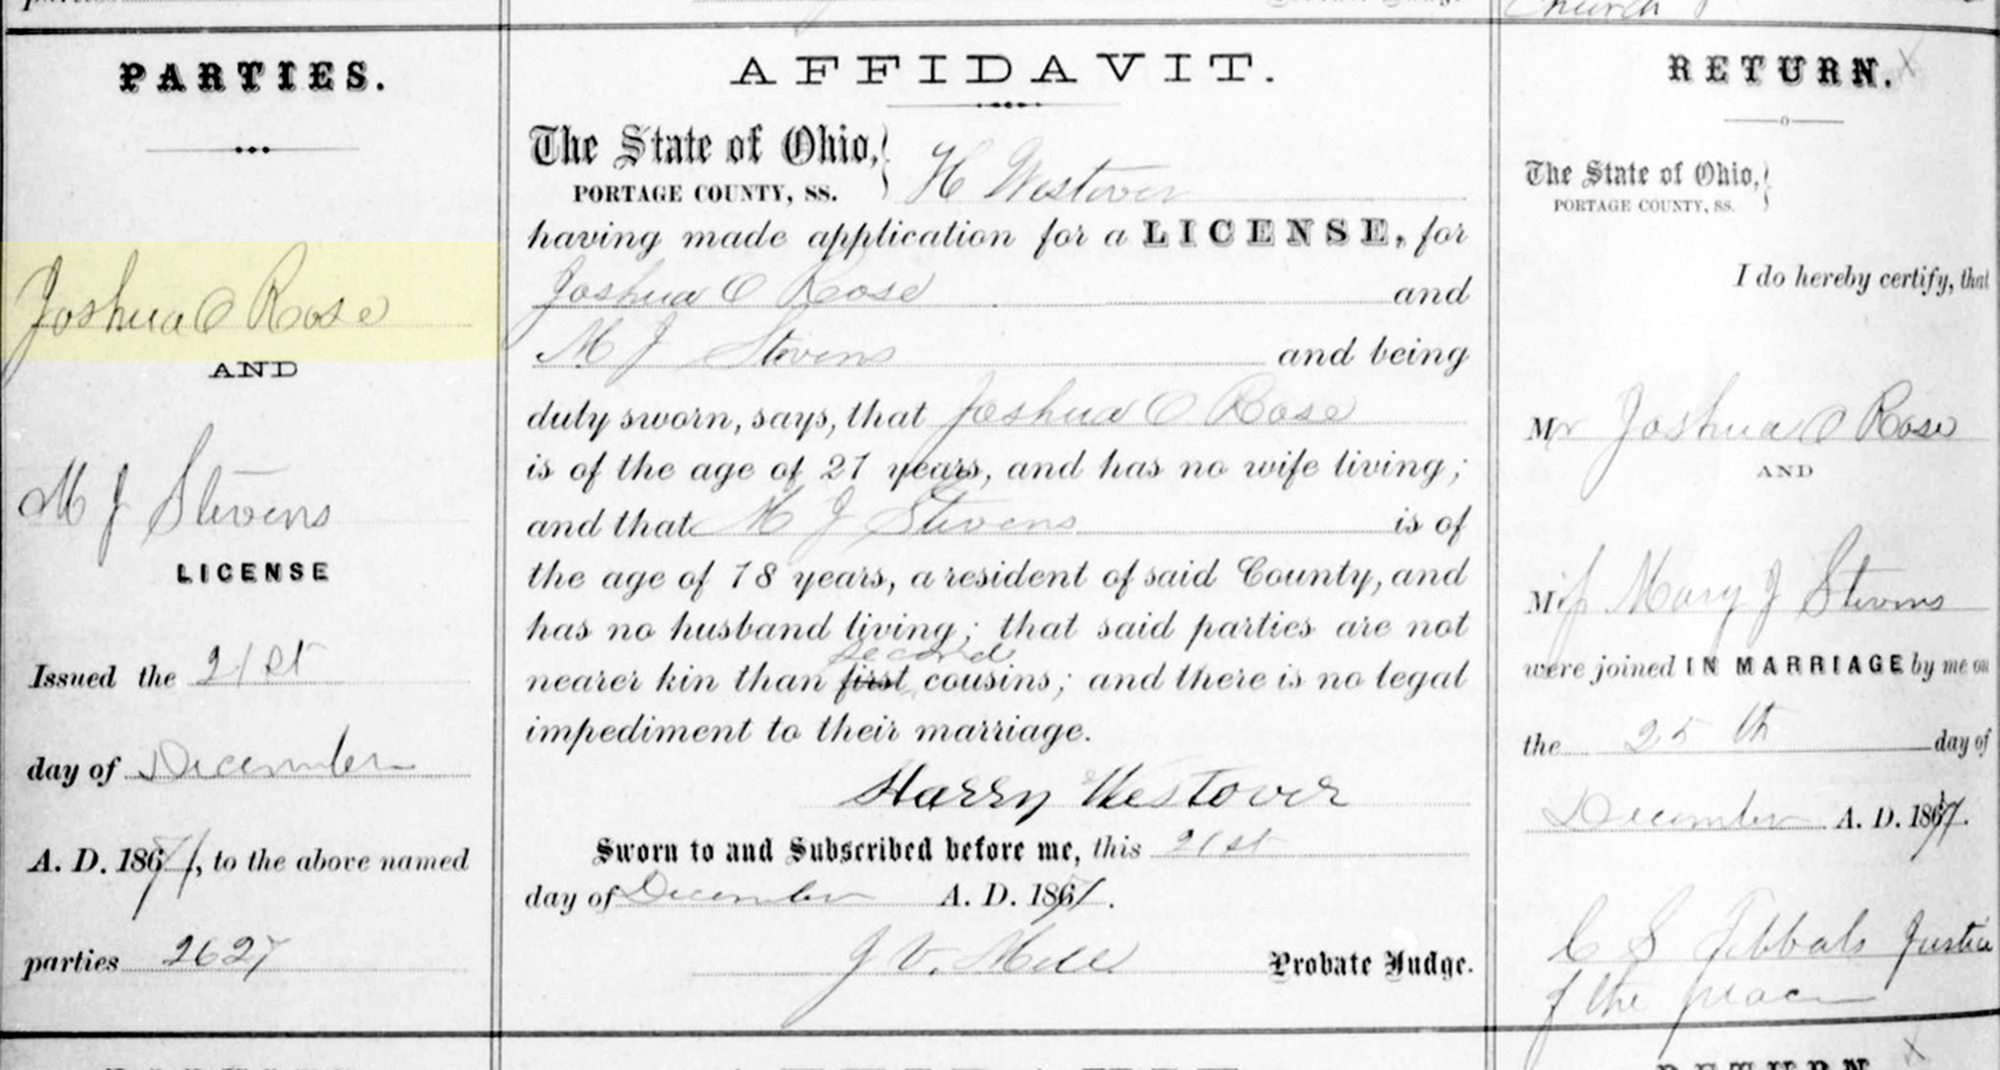 Church
PARTIES.
Joshua O Rose
AND
M J Stevens
LICENSE
Issued the 21st
day of December
A. D. 1871, to the above named
parties 2627
AFFIDAVIT.
The State of Ohio,
PORTAGE COUNTY, SS.
H Westover
having made application for a LICENSE, for
Joshua O Rose and
M J Stevens and being
duly sworn, says, that Joshua O Rose
is of the age of 21 years, and has no wife living;
and that M J Stevens is of
the age of 18 years, a resident of said County, and
has no husband living; that said parties are not
second
nearer kin than first cousins; and there is no legal
impediment to their marriage.
Harry Westover
Sworn to and Subscribed before me, this 21st
day of December A. D. 1871.
Probate Judge.
RETURN.
The State of Ohio,
PORTAGE COUNTY, SS.
I do hereby certify, that
Mr Joshua O Rose
AND
Miss Mary J Stevens
were joined IN MARRIAGE by me on
the 25th day of
December A. D. 187
C S Tibbals Justice
of the peace
RETURN